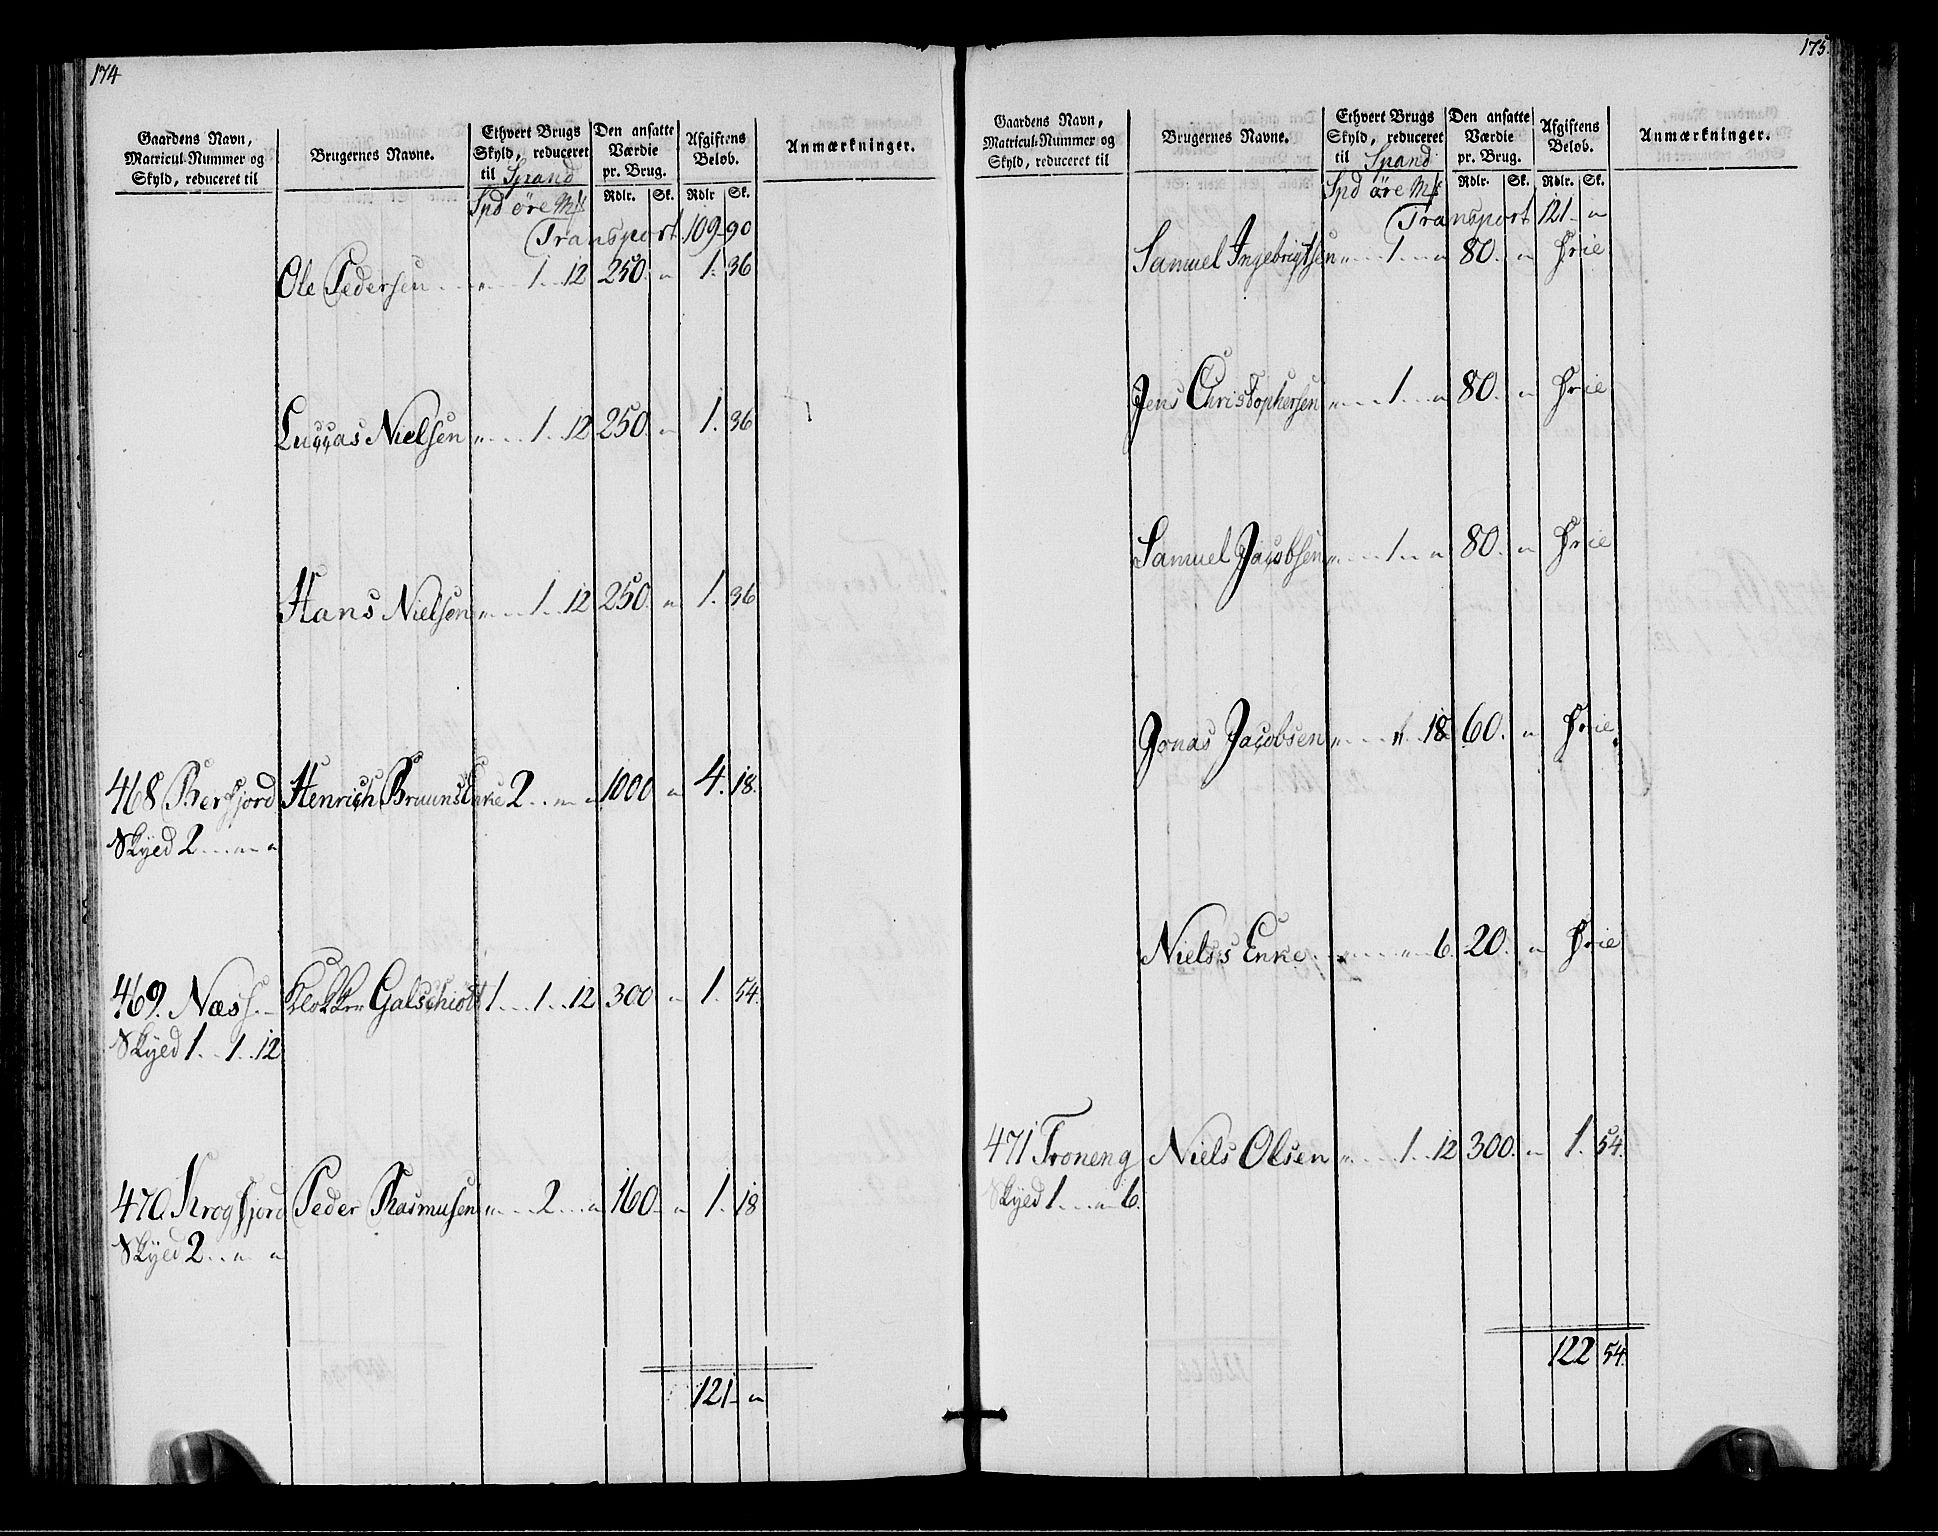 174
Gaardens Navn, Matricul-Nummer og Skyld, reduceret til
Brugernes Navne.
Ethvert Brugs Skyld, reduceret til Spand
Den ansatte Værdie pr. Brug.
Afgiftens Belob.
Anmærkninger.
Spd öre Mk Rdlr. Sk. Rdlr Sk.
Transport 109 - 90
Ole Pedersen . . . „ . . . 1 . . 12 250. „ 1. 36
Luccas Nielsen „ . . . 1 . . 12 250. „ 1. 36
Hans Nielsen „ . . . 1 . . 12 250. „ 1. 36
468 Berfjord Henrich Bruuns Enke 2 . . „ „ 1000 „ 4. 18.
Skyed 2 . . . „ „
469. Næss. - Klokker Galschiödt 1 . . . 1 . . 12 300 „ 1. 54.
Skyed 1 . . 1 . . 12
470. Krogfjord Peder Rasmusen „ . . . 2 . . . „ 160 - „ 1. 18
Skyed 2 . . „ „
121 - „
175.
Gaardens Navn, Matricul-Nummer og Skyld, reduceret til
Brugernes Navne.
Ethvert Brugs Skyld, reduceret til Spand
Den ansatte Værdie pr. Brug.
Afgiftens Belob.
Anmærkninger.
Spd öre Mk Rdlr. Sk. Rdlr. Sk.
Transport 121 - „
Samuel Ingebrigtsen „ . . . 1 . . . „ 80. „ Frie
Jens Christophersen „ . . . 1 . . . „ 80. „ Frie
Samuel Jacobsen „ . . . 1 . . „ 80. „ Frie
Jonas Jacobsen „ . . . „ . . 18 60. „ Frie.
Niels's Enke . . „ . . . „ . . 6. 20. „ Frie
471 Troneng Niels Olsen „ . . . 1 . . 12 300. „ 1. 54.
Skyed 1 . . . „ 6.
122 54.